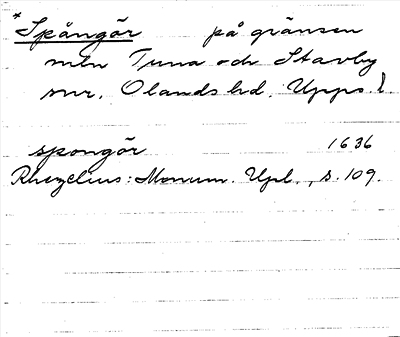 *Spångör på gränsen
mln Tuna och Stavby
snr. Olands hd. Upps. l.
spongör 1636
Rhezelius: Monum. Upl., s. 109.